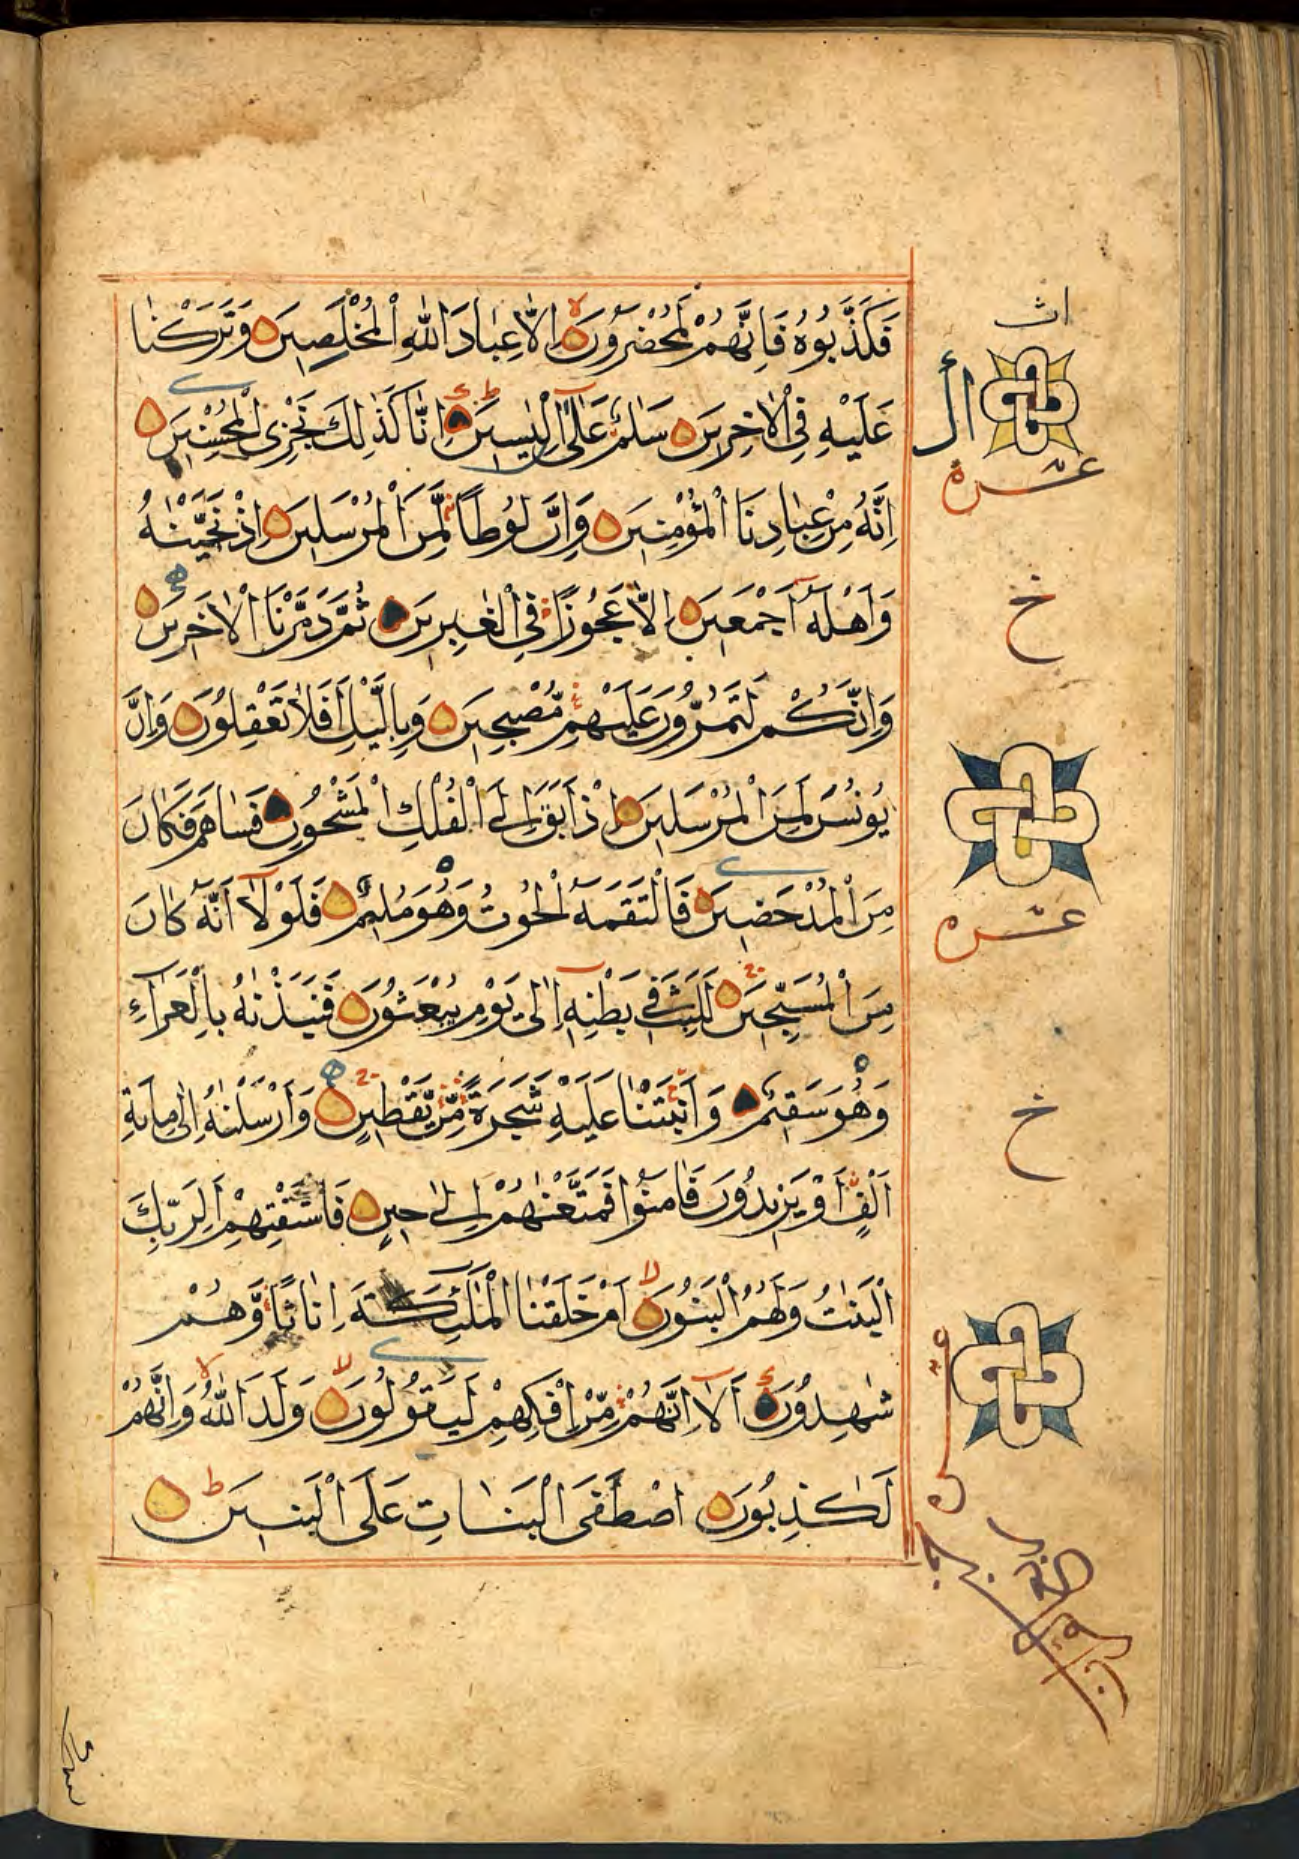 فَكَذَّبُوهُ فَاِنَّهُمْ لَمُحْضَرُونَ اِلَّا عِبَادَ اللّٰهِ الْمُخْلَصِينَ وَتَرَكْنَا
عَلَيْهِ فِى الْاٰخِرِينَ سَلٰمٌ عَلٰٓى اِلْيَاسِينَ اِنَّا كَذٰلِكَ نَجْزِى الْمُحْسِنِينَ
اِنَّهُ مِنْ عِبَادِنَا الْمُؤْمِنِينَ وَاِنَّ لُوطًا لَّمِنَ الْمُرْسَلِينَ اِذْ نَجَّيْنٰهُ
وَاَهْلَهٓ اَجْمَعِينَ اِلَّا عَجُوزًا فِى الْغٰبِرِينَ ثُمَّ دَمَّرْنَا الْاٰخَرِينَ
وَاِنَّكُمْ لَتَمُرُّونَ عَلَيْهِمْ مُّصْبِحِينَ وَبِالَّيْلِ اَفَلَا تَعْقِلُونَ وَاِنَّ
يُونُسَ لَمِنَ الْمُرْسَلِينَ اِذْ اَبَقَ اِلَى الْفُلْكِ الْمَشْحُونِ فَسَاهَمَ فَكَانَ
مِنَ الْمُدْحَضِينَ فَالْتَقَمَهُ الْحُوتُ وَهُوَ مُلِيمٌ فَلَوْلَآ اَنَّهُ كَانَ
مِنَ الْمُسَبِّحِينَ لَلَبِثَ فِى بَطْنِهٓ اِلٰى يَوْمِ يُبْعَثُونَ فَنَبَذْنٰهُ بِالْعَرَآءِ
وَهُوَ سَقِيمٌ وَاَنْبَتْنَا عَلَيْهِ شَجَرَةً مِّنْ يَّقْطِينٍ وَاَرْسَلْنٰهُ اِلٰى مِايَةِ
اَلْفٍ اَوْ يَزِيدُونَ فَاٰمَنُوا فَمَتَّعْنٰهُمْ اِلٰى حِينٍ فَاسْتَفْتِهِمْ اَلِرَبِّكَ
الْبَنٰتُ وَلَهُمُ الْبَنُونَ اَمْ خَلَقْنَا الْمَلٰٓئِكَةَ اِنَاثًا وَّهُمْ
شٰهِدُونَ اَلَآ اِنَّهُمْ مِّنْ اِفْكِهِمْ لَيَقُولُونَ وَلَدَ اللّٰهُ وَاِنَّهُمْ
لَكٰذِبُونَ اصْطَفَى الْبَنَاتِ عَلَى الْبَنِينَ
ال
عشره
خ
عشره
خ